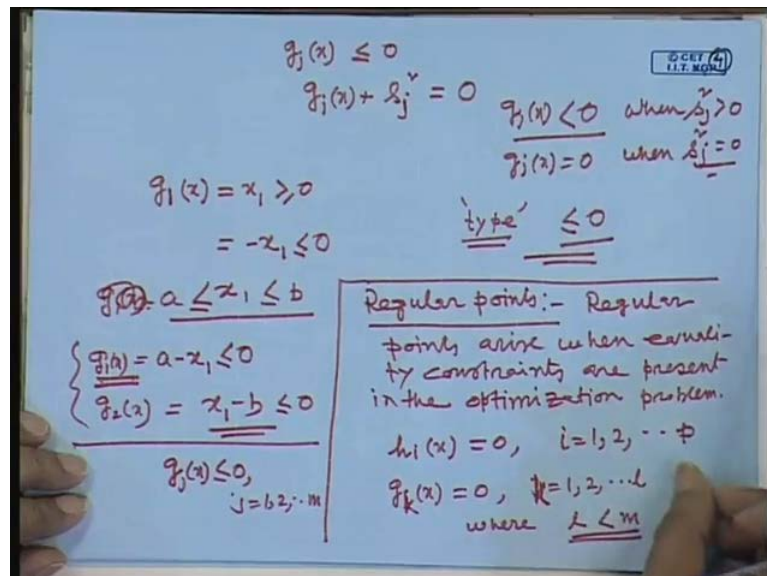 g_j(x) ≤ 0
© CET
I.I.T. KGP
4
g_j(x) + s_j² = 0
g_j(x) < 0 when s_j² > 0
g_j(x) = 0 when s_j² = 0
g_1(x) = x_1 ≥ 0
= -x_1 ≤ 0
'type' ≤ 0
g_1(x) = a ≤ x_1 ≤ b
g_1(x) = a - x_1 ≤ 0
g_2(x) = x_1 - b ≤ 0
g_j(x) ≤ 0,
j = 1, 2, ·· m
Regular points:- Regular
points arise when equali-
ty constraints are present
in the optimization problem.
h_i(x) = 0, i = 1, 2, ·· p
g_k(x) = 0, k = 1, 2, ·· l
where l < m